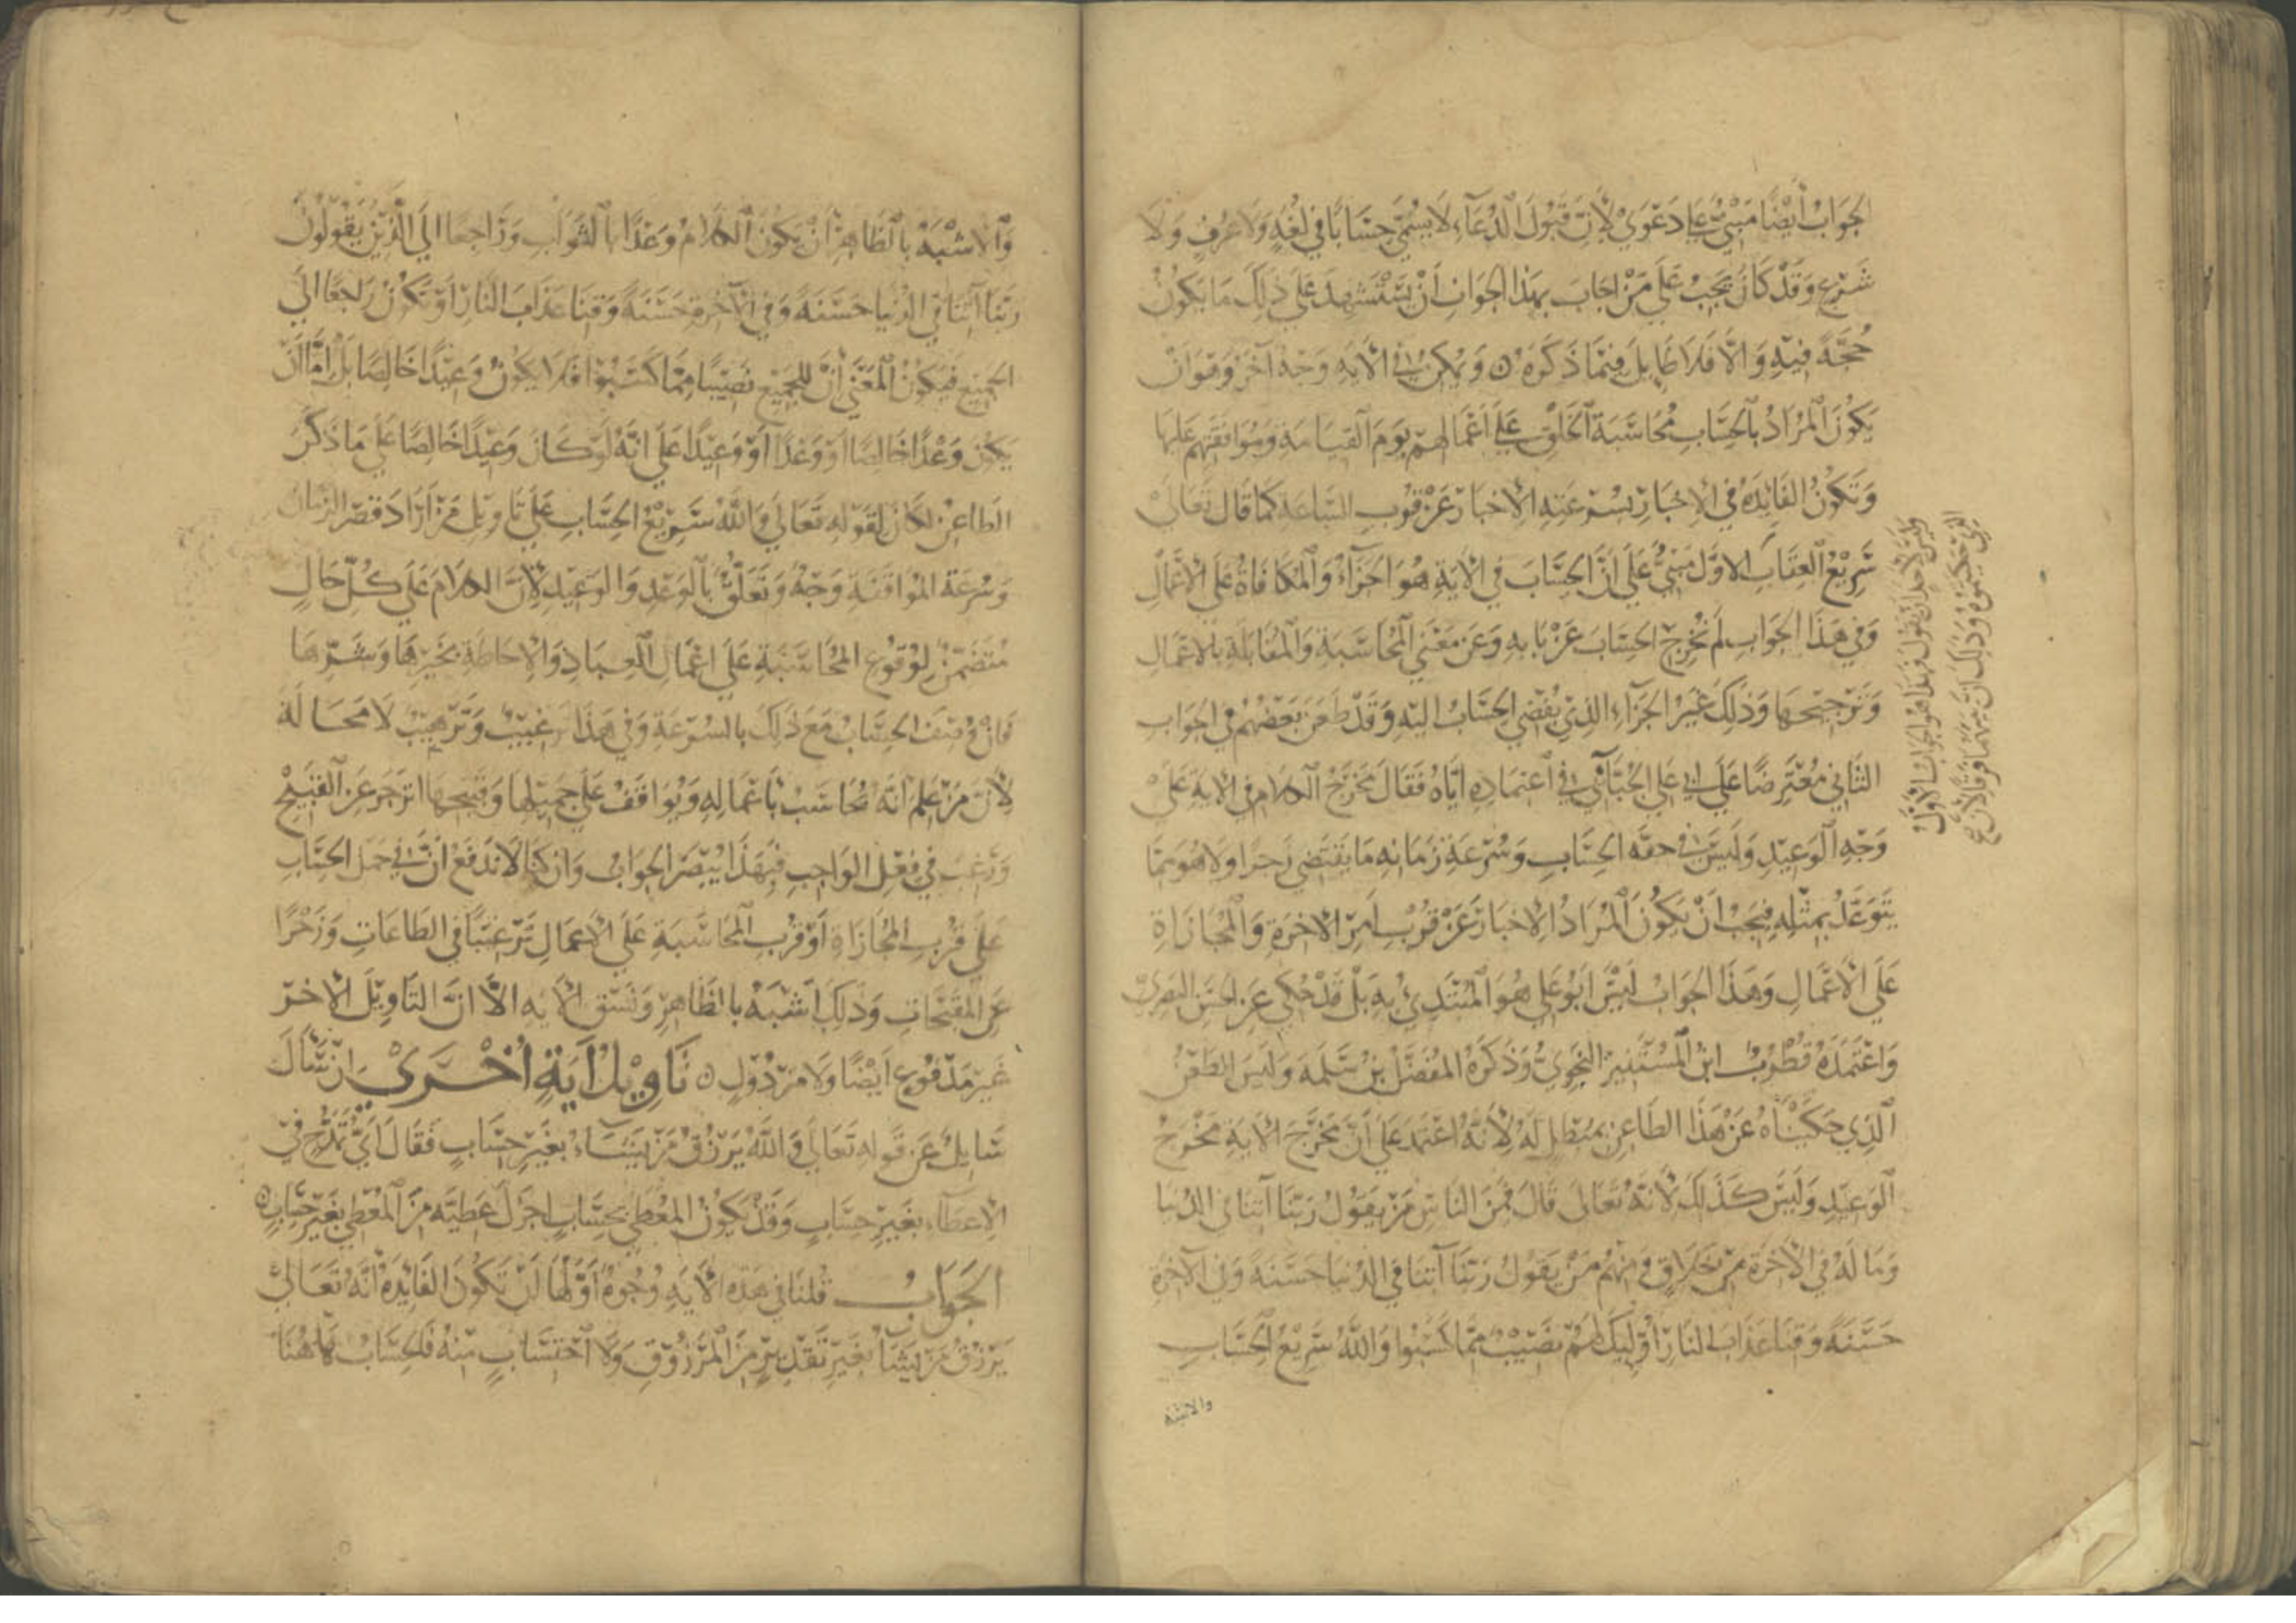 الجواب أيضا مبني على دعوى لأن قبول الدعاء لا يسمى حسابا في لغة ولا عرف ولا
شرع وقد كان يجب على من اجاب بهذا الجواب أن يستشهد على ذلك ما يكون
حجة فيه والا فلا طايل فيما ذكره ويمكن في الآية وجه آخر وهو ان
يكون المراد بالحساب محاسبة الخلق على أعمالهم يوم القيامة وموافقتهم عليها
وتكون الفائدة في الاخبار بسرعته الاخبار عن قرب الساعة كما قال تعالى
سريع العقاب الاول مبني على ان الحساب في الآية هو الجزاء والمكافاة على الاعمال
وفي هذا الجواب لم نخرج الحساب عن بابه وعن معنى المحاسبة والمقابلة بالاعمال
وترجيحها وذلك غير الجزاء الذي يفضي الحساب اليه وقد طعن بعضهم في الجواب
الثاني معترضا على ابي علي الجبائي في اعتماده اياه فقال مخرج الكلام في الآية على
وجه الوعيد وليس في خفة الحساب وسرعة زمانه ما يقتضي زجرا ولا هو مما
يتوعد بمثله فيجب ان يكون المراد الاخبار عن قرب امر الآخرة والمجازاة
على الاعمال وهذا الجواب ليس ابو علي هو المبتدئ به بل قد حكي عن الحسن البصري
واعتمده قطرب ابن المستنير النحوي وذكره المفضل بن سلمة وليس الطعن
الذي حكيناه عن هذا الطاعن بمبطل له لأنه اعتمد على أن مخرج الآية مخرج
الوعيد وليس كذلك لأنه تعالى قال فمن الناس من يقول ربنا آتنا في الدنيا
وما له في الآخرة من خلاق ومنهم من يقول ربنا آتنا في الدنيا حسنة وفي الآخرة
حسنة وقنا عذاب النار أوليك لهم نصيب مما كسبوا والله سريع الحساب
والاشبه
وليس لأحد ان يقول فهذا هو الجواب الأول
الذي حكيتموه وذلك ان بينهما فرقا لأن
والاشبه بالظاهر أن يكون الكلام وعدا بالثواب وراجعا الى الذين يقولون
ربنا آتنا في الدنيا حسنة وفي الآخرة حسنة وقنا عذاب النار او تكون راجعا الى
الجميع فيكون المعنى أن للجميع نصيبا مما كسبوا فلا يكون وعيدا خالصا بل اما ان
يكون وعدا خالصا او وعدا أو وعيدا على انه لو كان وعيدا خالصا على ما ذكر
الطاعن لكان لقوله تعالى والله سريع الحساب على تاويل من أراد قصر الزمان
وسرعة الموافقة وجه وتعلق بالوعد والوعيد لأن الكلام على كل حال
متضمن لوقوع المحاسبة على اعمال العباد والاحاطة بخيرها وشرها
فان وصف الحساب مع ذلك بالسرعة وفي هذا ترغيب وترهيب لا محالة
لأن من علم انه محاسب بأعماله ويواقف على جميلها وقبيحها انزجر عن القبيح
ورغب في فعل الواجب فبهذا ينصر الجواب وان كنا لا ندفع ان في حمل الحساب
على قرب المجازاة أو قرب المحاسبة على الاعمال ترغيبا في الطاعات وزجرا
عن المقبحات وذلك اشبه بالظاهر ونسق الآية الا ان التاويل الاخر
غير مدفوع أيضا ولا مرذول تاويل آية أخرى ان سأل
سايل عن قوله تعالى والله يرزق من يشاء بغير حساب فقال أي تمدح في
الاعطاء بغير حساب وقد يكون المعطي بحساب اجزل عطية من المعطي بغير حساب
الجواب قلنا في هذه الآية وجوه أولها أن تكون الفائدة أنه تعالى
يرزق من يشا بغير تقدير من المرزوق ولا احتساب منه فالحساب هاهنا